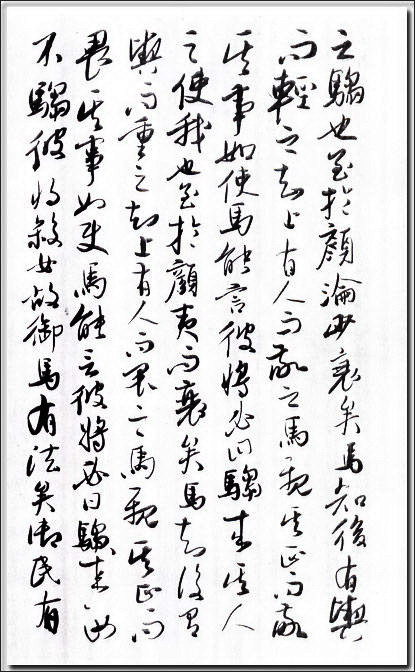 之騶也至於顏淪少衰矣馬知後有輿
而輕之知上有人而敬之馬親其正而敬
其事如使馬能言彼將必曰騶來其人
之使我也至於顏夷而衰矣馬知後有
輿而重之知上有人而畏之馬親其正而
畏其事如使馬能言彼將必曰騶來女
不騶彼將殺女故御馬有法矣御民有